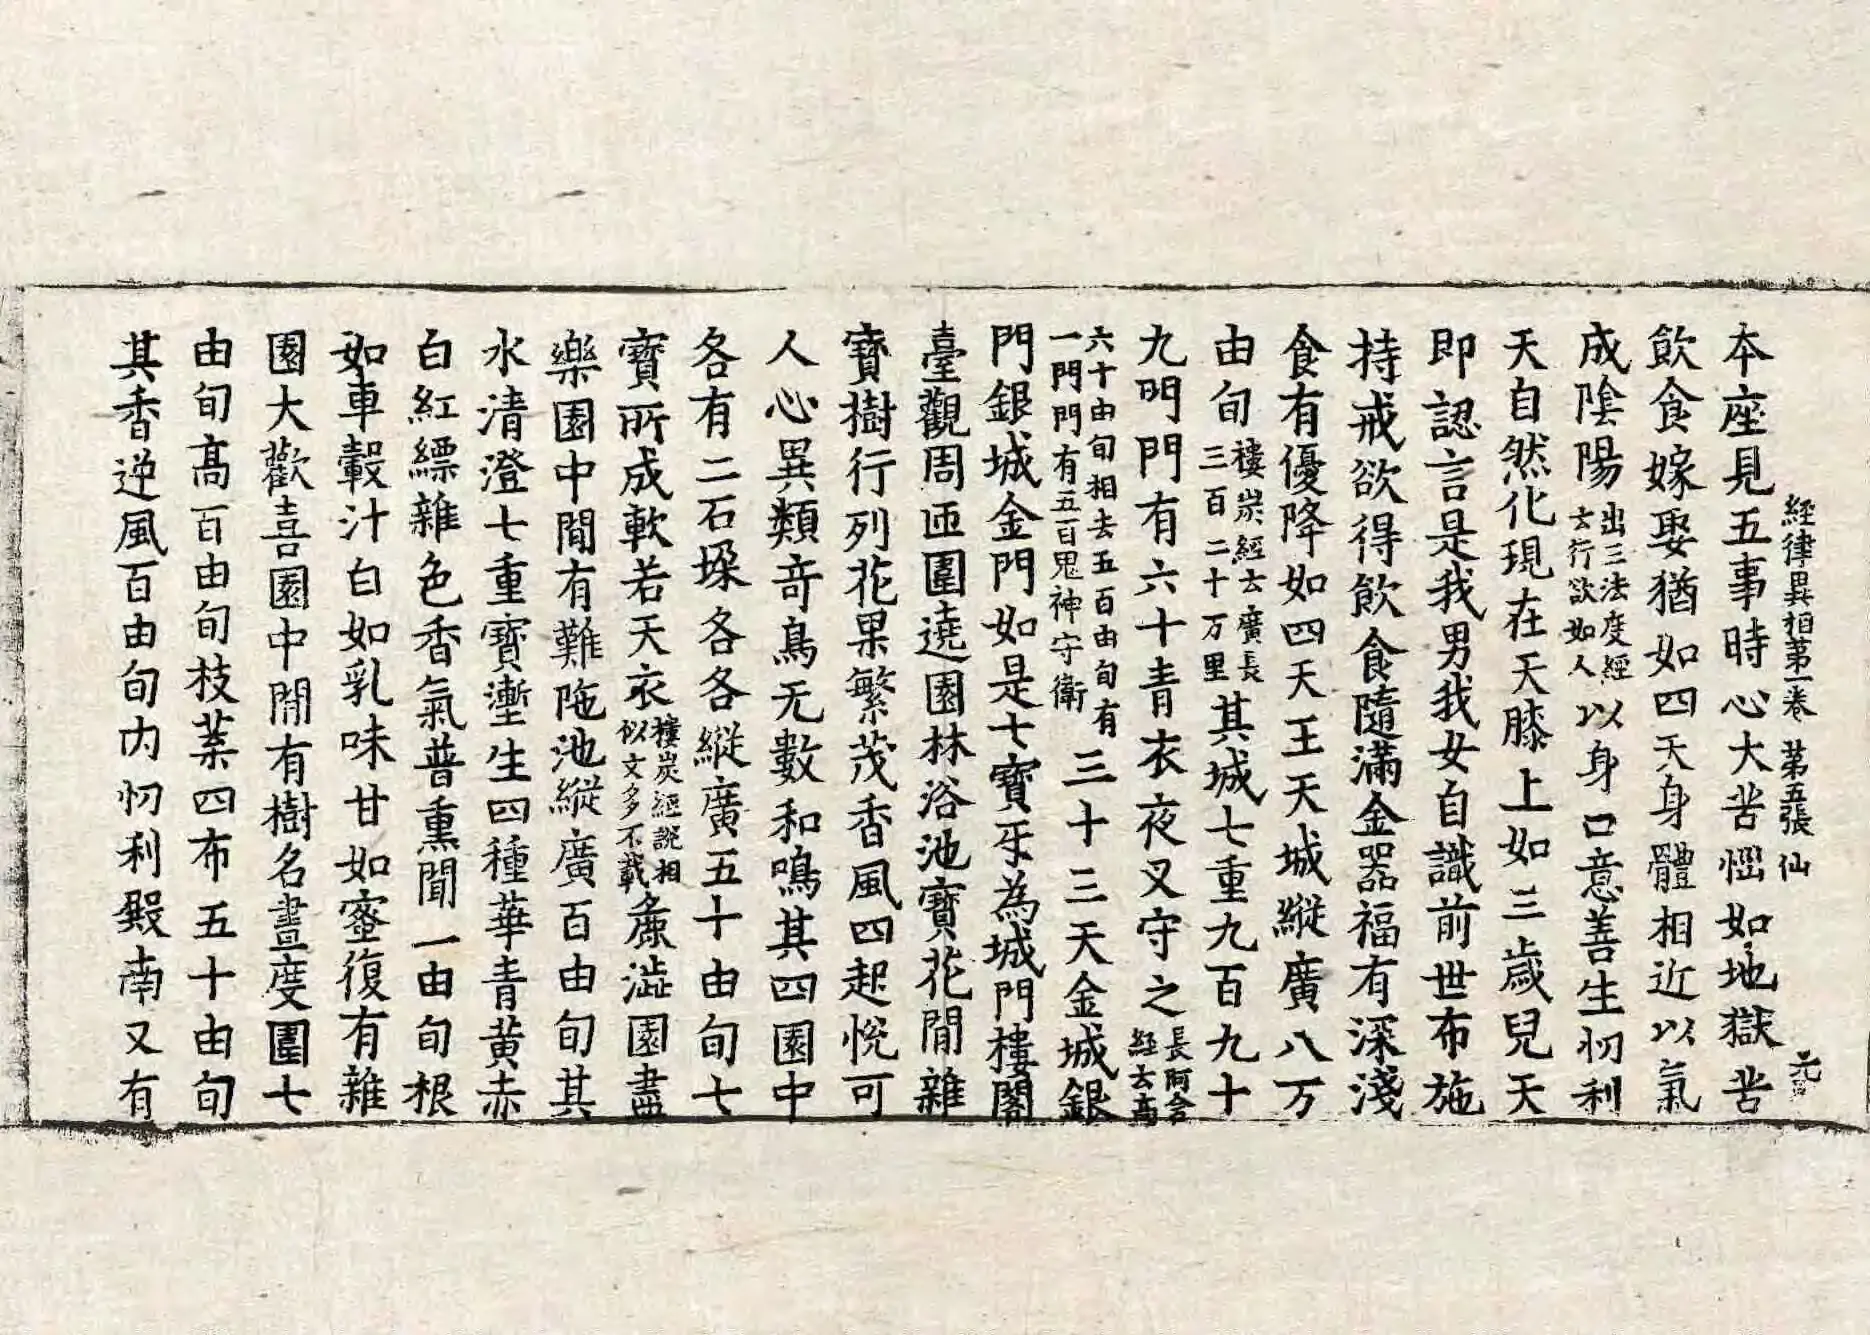 經律異相第一卷 第五張 仙
本座見五事時心大苦惱如地獄苦
飲食嫁娶猶如四天身體相近以氣
成陰陽出三法度經云行欲如人以身口意善生忉利
天自然化現在天膝上如三歲兒天
即認言是我男我女自識前世布施
持戒欲得飲食隨滿金器福有深淺
食有優降如四天王天城縱廣八万
由旬樓炭經云廣長三百二十万里其城七重九百九十
九門門有六十青衣夜叉守之長阿含經云高
六十由旬相去五百由旬有一門門有五百鬼神守衛三十三天金城銀
門銀城金門如是七寶牙為城門樓閣
臺觀周匝圍遶園林浴池寶花間雜
寶樹行列花果繁茂香風四起悅可
人心異類奇鳥无數和鳴其四園中
各有二石垛各各縱廣五十由旬七
寶所成軟若天衣樓炭經說相似文多不載麁澁園晝
樂園中間有難陁池縱廣百由旬其
水清澄七重寶塹生四種華青黄赤
白紅縹雜色香氣普熏聞一由旬根
如車轂汁白如乳味甘如蜜復有雜
園大歡喜園中間有樹名晝度圍七
由旬高百由旬枝葉四布五十由旬
其香逆風百由旬内忉利殿南又有